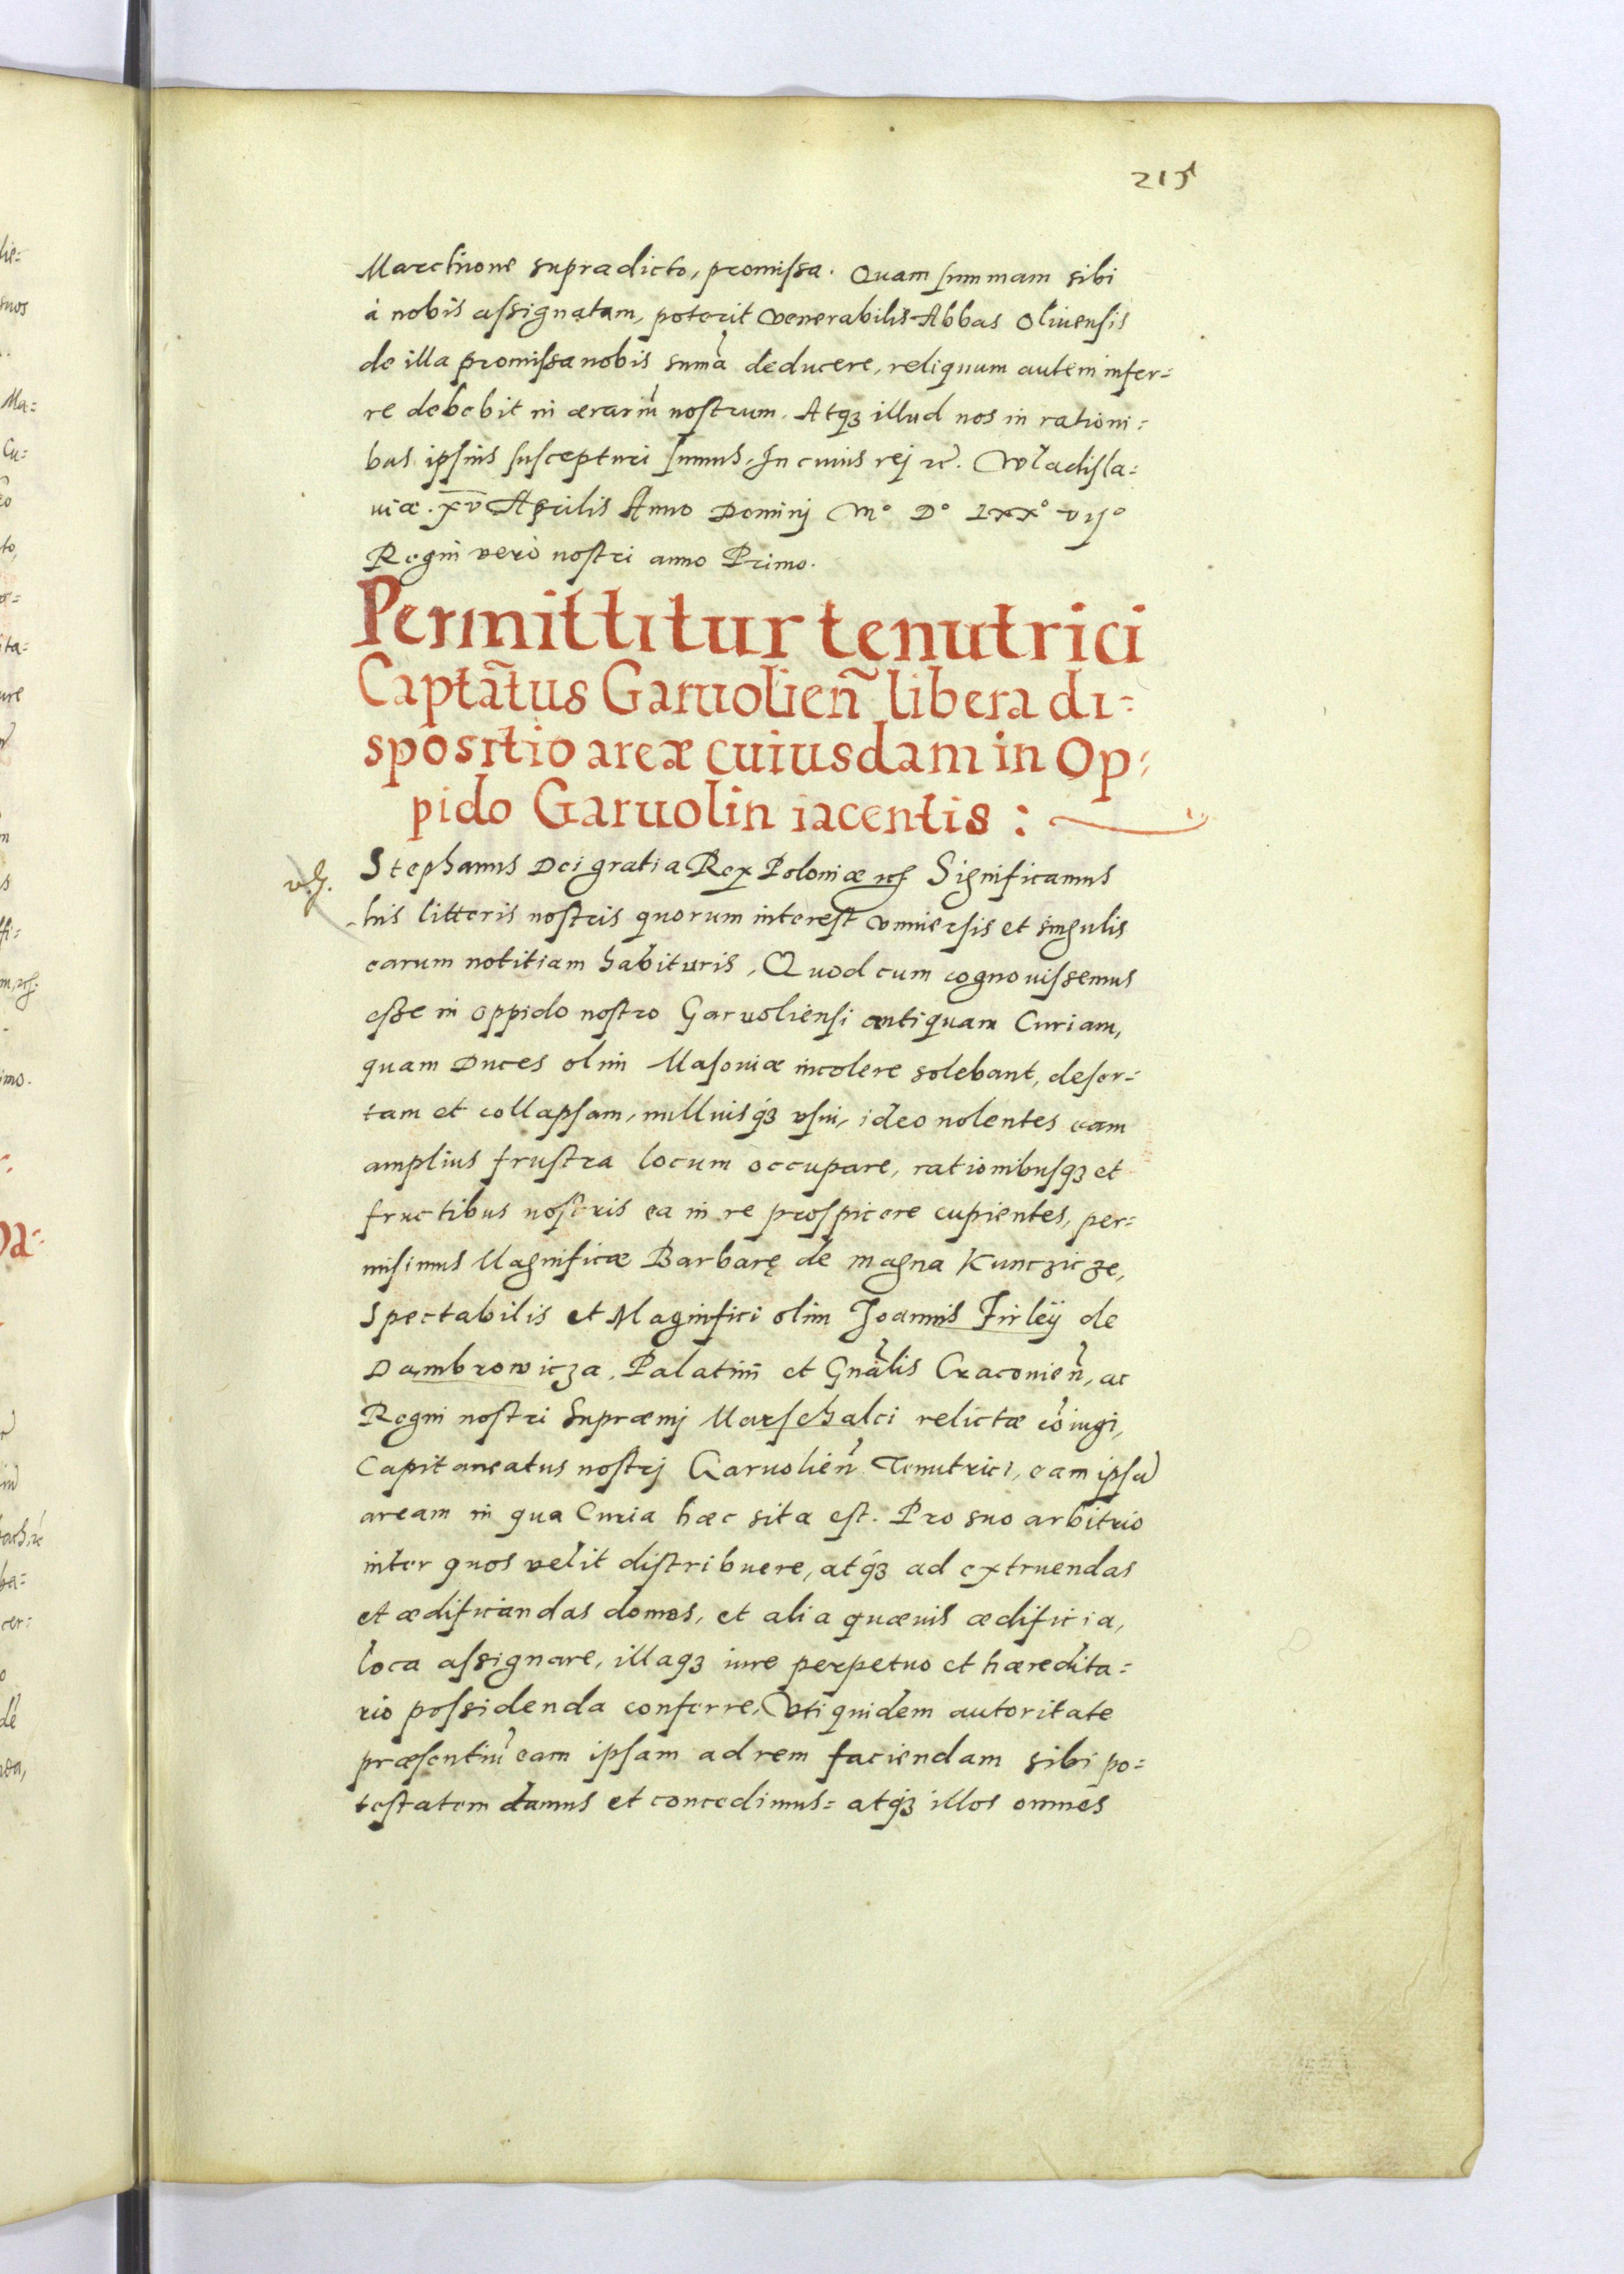 215
Marchione supradicto, promissa. Quam summam sibi
à nobis assignatam, poterit Venerabilis Abbas Oliuensis
de illa promissa nobis sum̃a deducere, reliquum autem infer=
re debebit in ærariũ nostrum. Atq₃ illud nos in rationi=
bus ipsius suscepturi sumus. In cuius rej ꝛc̃. Wladisla=
uiæ. xv Aprilis Anno Dominj Mº Dº LXXº vijº
Regni verò nostri anno Primo.
Permittitur tenutrici
Captãtus Garuolieñ libera di=
spositio areæ cuiusdam in Op=
pido Garuolin iacentis :
Stephanus Dei gratia Rex Poloniæ ꝛc̃ Significamus
his litteris nostris quorum interest vniuersis et singulis
earum notitiam habituris, Quod cum cognouissemus
esse in oppido nostro Garuoliensi antiquam Curiam,
quam Duces olim Masouiæ incolere solebant, deser=
tam et collapsam, nulliusq₃ vsui, ideo nolentes eam
amplius frustra locum occupare, rationibusq₃ et
fructibus nostris ea in re prospicere cupientes, per=
misimus Magnificæ Barbarę de magna Kunczicze,
Spectabilis et Magnifici olim Joannis Firleÿ de
Dambrowicza, Palatini et Gñalis Cracouieñ, ac
Regni nostri Supræmj Marschalci relictæ cõiugi,
Capitaneatus nostrj Garuolieñ Tenutrici, eam ipsã
aream in qua Curia hæc sita est. Pro suo arbitrio
inter quos velit distribuere, atq₃ ad extruendas
et ædificandas domos, et alia quæuis ædificia,
loca assignare, illaq₃ iure perpetuo et hæredita=
rio possidenda conferre, Vti quidem autoritate
præsentiũ eam ipsam ad rem faciendam sibi po=
testatem damus et concedimus= atq₃ illos omnes